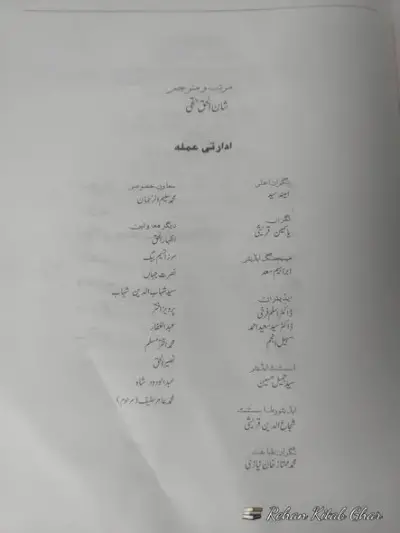 مرتب و مترجم
شان الحق حقی
ادارتی عملہ
نگران اعلیٰ
امینہ سید
نگراں
یاسمین قریشی
مینیجنگ ایڈیٹر
ابراہیم سعد
ایڈیٹران
ڈاکٹر اسلم فرخی
ڈاکٹر سید سعید احمد
سہیل انجم
اسسٹنٹ ایڈیٹر
سید جمیل حسین
شجاع الدین قریشی
نگران طباعت
محمد ممتاز خان نیازی
معاون خصوصی
محمد سلیم الرحمان
دیگر معاونین
اظہار الحق
مرزا نسیم بیگ
نصرت جہاں
سید شہاب الدین شہاب
پرویز اختر
عبدالغفار
محمد اختر مسلم
نصیر الحق
عبدالودود شاہ
محمد عامر حنیف (مرحوم)
Rehan Kitab Ghar